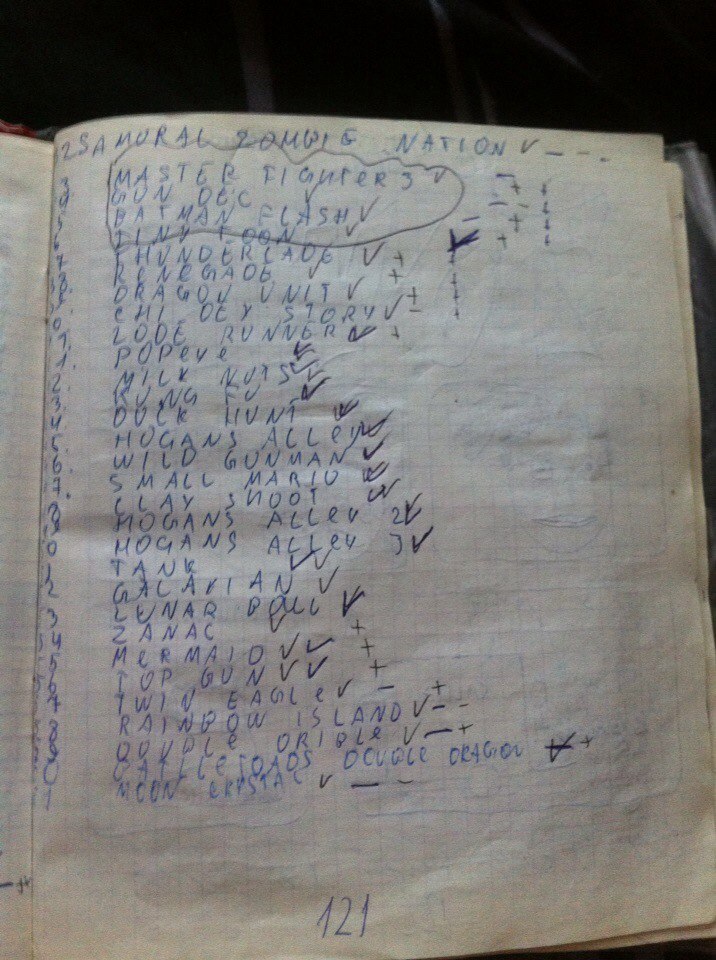 2 SAMURAL ZOMBIE NATION ✓ – – -
3 MASTER FIGHTER 3 ✓ –
GUN DEC ✓ +
BATMAN FLASH ✓
TINY TOON
THUNDERLADE ✓ +
RENEGADE ✓ +
DRAGON UNIT ✓ +
CHI DEX STORY ✓ –
LODE RUNNER ✓ +
POPeye ✓
MILK NUTS ✓
KUNG FU ✓
DUCK HUNT ✓
HOGANS ALLeY ✓
WILD GUNMAN ✓
SMALL MARIO ✓
CLAY SHOOT ✓
HOGANS ALLeY 2 ✓
HOGANS ALLeY 3 ✓
TANK ✓ ✓
GALAXIAN ✓
LUNAR BALL ✓
ZANAC ✓
MeRMAID ✓ ✓ +
TOP GUN ✓ ✓ +
TWIN EAGLe ✓ – +
RAINBOW ISLAND ✓ – –
DOUBLe DRIBLe ✓ – +
BATTLETOADS DOUBLe DRAGION +
MOON CRYSTAL ✓ – –
121